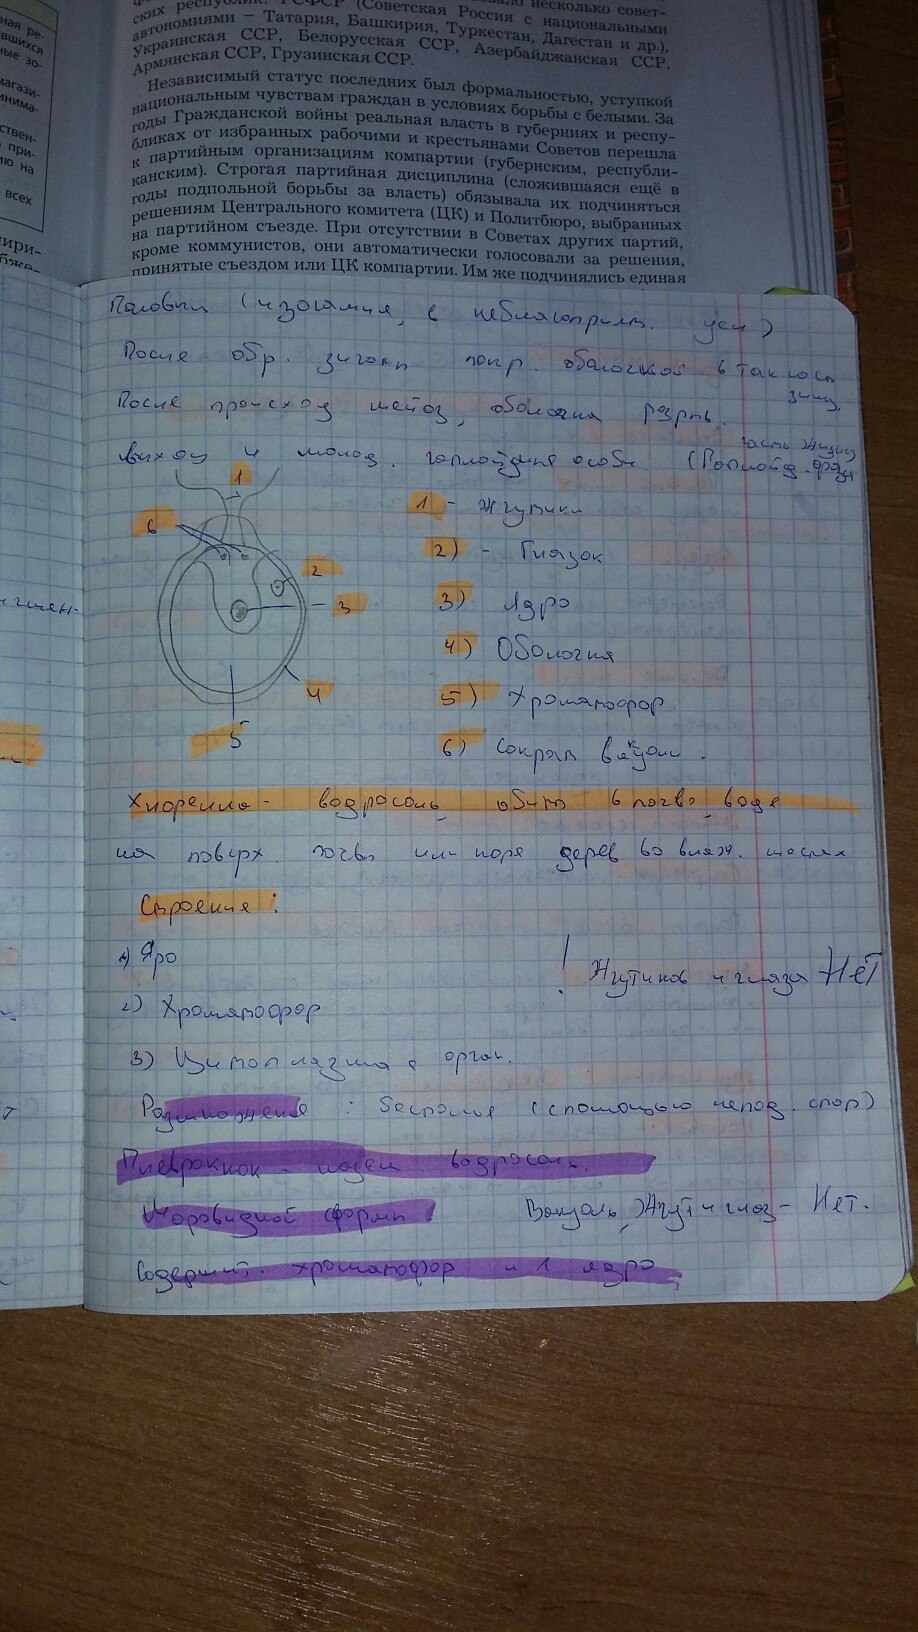 ная ре-
вшихся
ные зо-
магази-
инима-
ствен-
при-
ию на
всех
ских республик: РСФСР (Советская Россия с национальными
автономиями — Татария, Башкирия, Туркестан, Дагестан и др.),
Украинская ССР, Белорусская ССР, Азербайджанская ССР,
Армянская ССР, Грузинская ССР.
Независимый статус последних был формальностью, уступкой
национальным чувствам граждан в условиях борьбы с белыми. За
годы Гражданской войны реальная власть в губерниях и респу-
бликах от избранных рабочими и крестьянами Советов перешла
к партийным организациям компартии (губернским, республи-
канским). Строгая партийная дисциплина (сложившаяся ещё в
годы подпольной борьбы за власть) обязывала их подчиняться
решениям Центрального комитета (ЦК) и Политбюро, выбранных
на партийном съезде. При отсутствии в Советах других партий,
кроме коммунистов, они автоматически голосовали за решения,
принятые съездом или ЦК компартии. Им же подчинялись единая
Половым (изогамия, в неблагоприят. усл)
После обр. зиготы покр. оболочкой в так сост
зиму,
После происход мейоз, оболочка разрыв.
часть жизни
выход 4 молод. гаплоидные особи. (Гаплоид. фаза
1
6
2
3
4
5
1 - Жгутики
2) - Глазок
3) Ядро
4) Оболочка
5) Хроматофор
6) Сократ вакуоли.
Хлорелла - водросоль, обит в почве, воде
на поверх. почвы или коре дерев во влаж. местах
Строение:
1) Яро
! Жгутиков и глаза НЕТ
2) Хроматофор
3) Цитоплазма с орган.
Размножение : Бесполое (с помощью непод. спор)
Плеврококк - назем водросоль.
Шаровидной формы Вакуоль, Жгут и глаз - Нет.
Содержит. хроматофор и 1 ядро